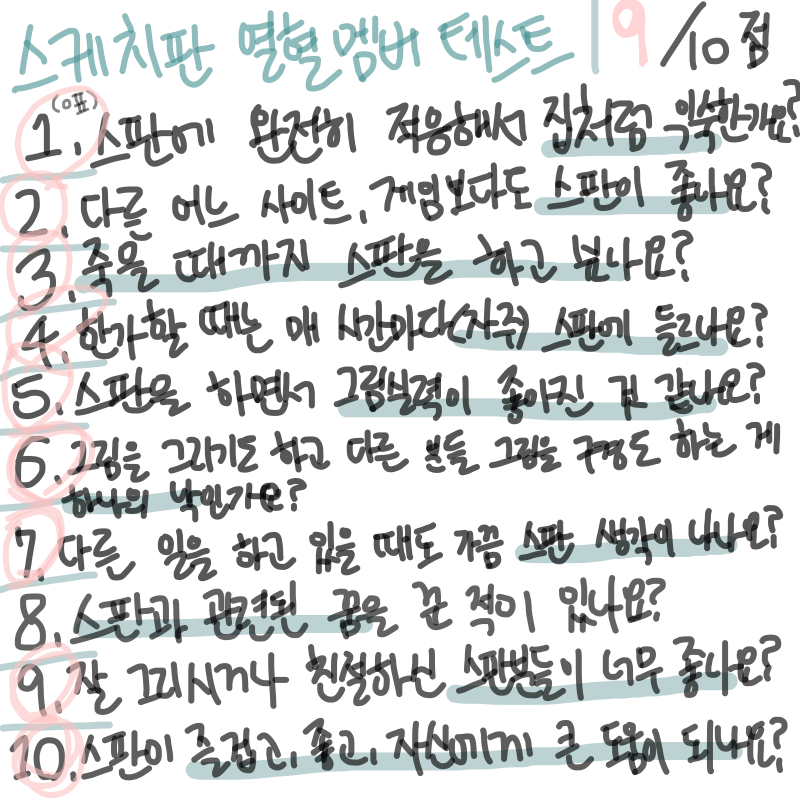 스케치판 열혈멤버 테스트 9/10점
(이프)
1. 스판에 완전히 적응해서 집처럼 익숙한가요?
2. 다른 어느 사이트, 게임보다도 스판이 좋나요?
3. 죽을 때까지 스판을 하고 싶나요?
4. 한가할 때는 매 시간마다(자주) 스판에 들르나요?
5. 스판을 하면서 그림실력이 좋아진 것 같나요?
6. 그림을 그리기도 하고 다른 분들 그림을 구경도 하는 게
하나의 낙인가요?
7. 다른 일을 하고 있을 때도 가끔 스판 생각이 나나요?
8. 스판과 관련된 꿈을 꾼 적이 있나요?
9. 잘 그리시거나 친절하신 스판분들이 너무 좋나요?
10. 스판이 즐겁고, 좋고, 자신에게 큰 도움이 되나요?